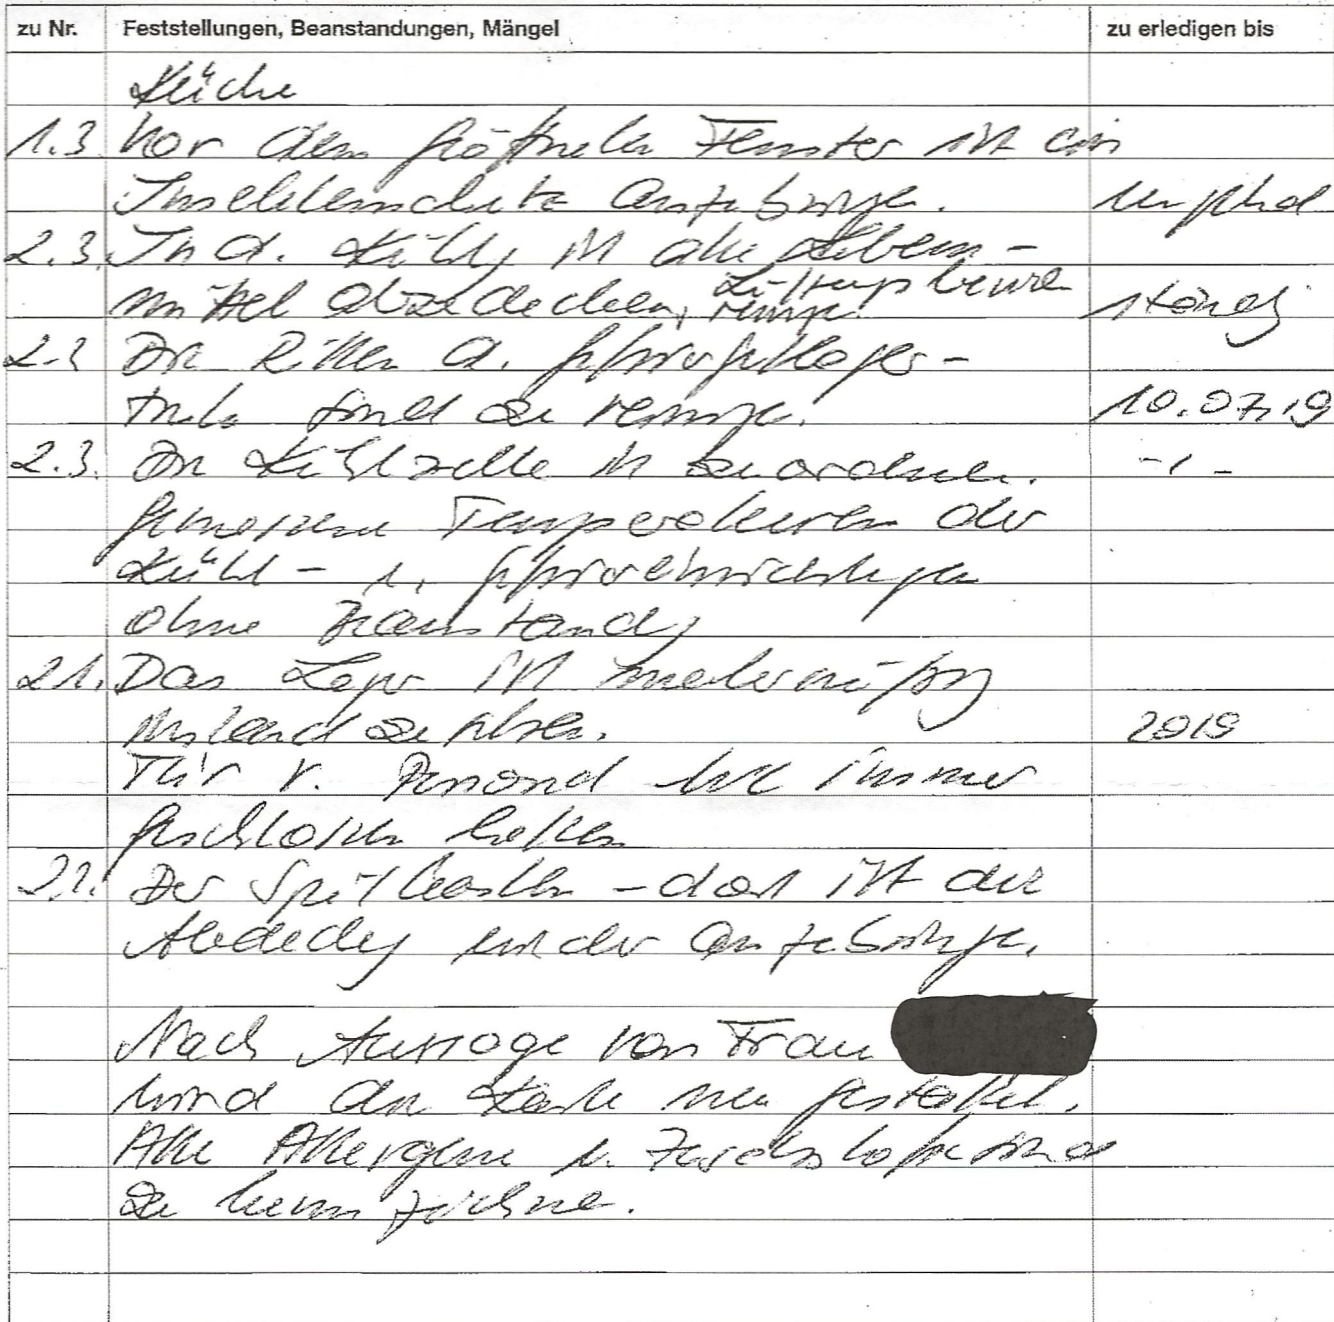 zu Nr. Feststellungen, Beanstandungen, Mängel zu erledigen bis
Küche
1.3 Vor dem geöffneten Fenster ist ein
Insektenschutz anzubringen.
2.3. In d. Kühlg ist die Lebens-
mittel abzudecken, reinigen. ständig
2.2 Die Rillen d. Gefrierfachlager-
truhe sind zu reinigen. 10.07.19
2.3. Die Kühlzelle ist zu ordnen. -"-
gemessene Temperaturen der
Kühl- u. Gefriereinrichtungen
ohne Beanstandg
2.1. Das Lager ist malermäßig
instand zu setzen. 2019
Tür v. Personal WC immer
geschlossen halten
2.1. Der Spülkasten - dort ist die
Abdeckg wieder anzubringen.
Nach Aussage von Frau
wird die Karte neu gestaltet.
Alle Allergene u. Zusatzstoffe sind
zu kennzeichnen.